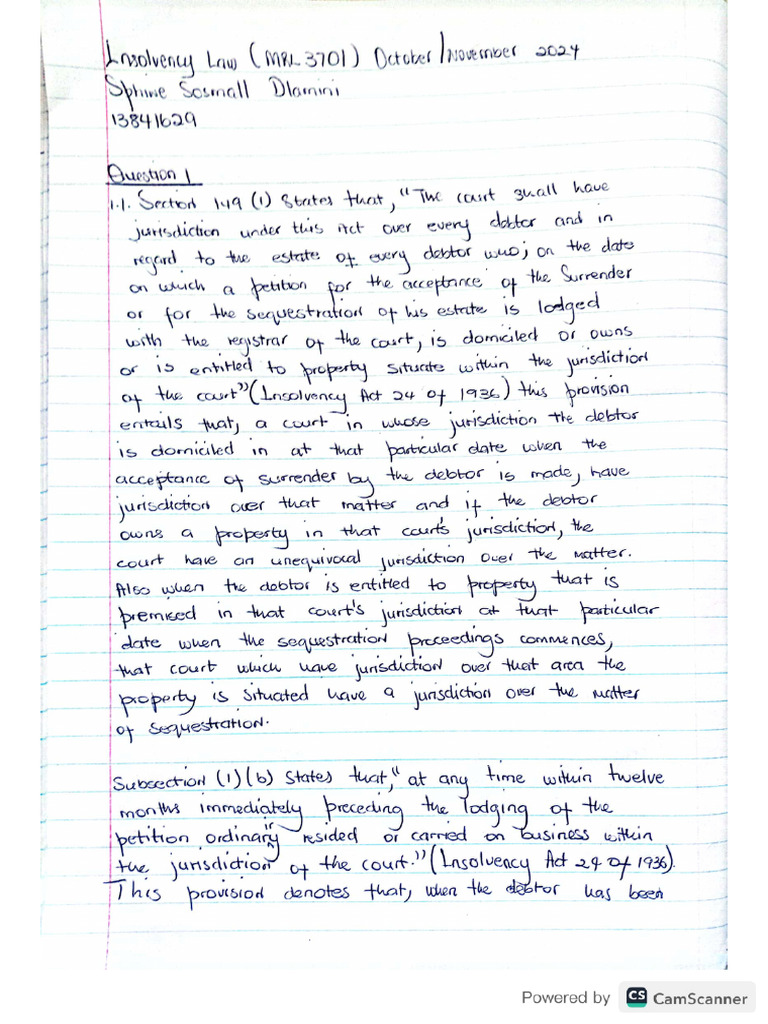 Insolvency Law (MRL 3701) October/November 2024
Sphiwe Sosmall Dlamini
13841629
Question 1
1.1. Section 149 (1) States that, "The court shall have
jurisdiction under this Act over every debtor and in
regard to the estate of every debtor who; on the date
on which a petition for the acceptance of the Surrender
or for the sequestration of his estate is lodged
with the registrar of the court, is domiciled or owns
or is entitled to property situate within the jurisdiction
of the court" (Insolvency Act 24 of 1936) this provision
entails that, a court in whose jurisdiction the debtor
is domiciled in at that particular date when the
acceptance of surrender by the debtor is made, have
jurisdiction over that matter and if the debtor
owns a property in that court's jurisdiction, the
court have an unequivocal jurisdiction over the matter.
Also when the debtor is entitled to property that is
premised in that court's jurisdiction at that particular
date when the sequestration proceedings commences,
that court which have jurisdiction over that area the
property is situated have a jurisdiction over the matter
of sequestration.
Subsection (1)(b) States that," at any time within twelve
months immediately preceding the lodging of the
petition ordinarily resided or carried on business within
the jurisdiction of the court." (Insolvency Act 24 of 1936).
This provision denotes that, when the debtor has been
Powered by CS CamScanner